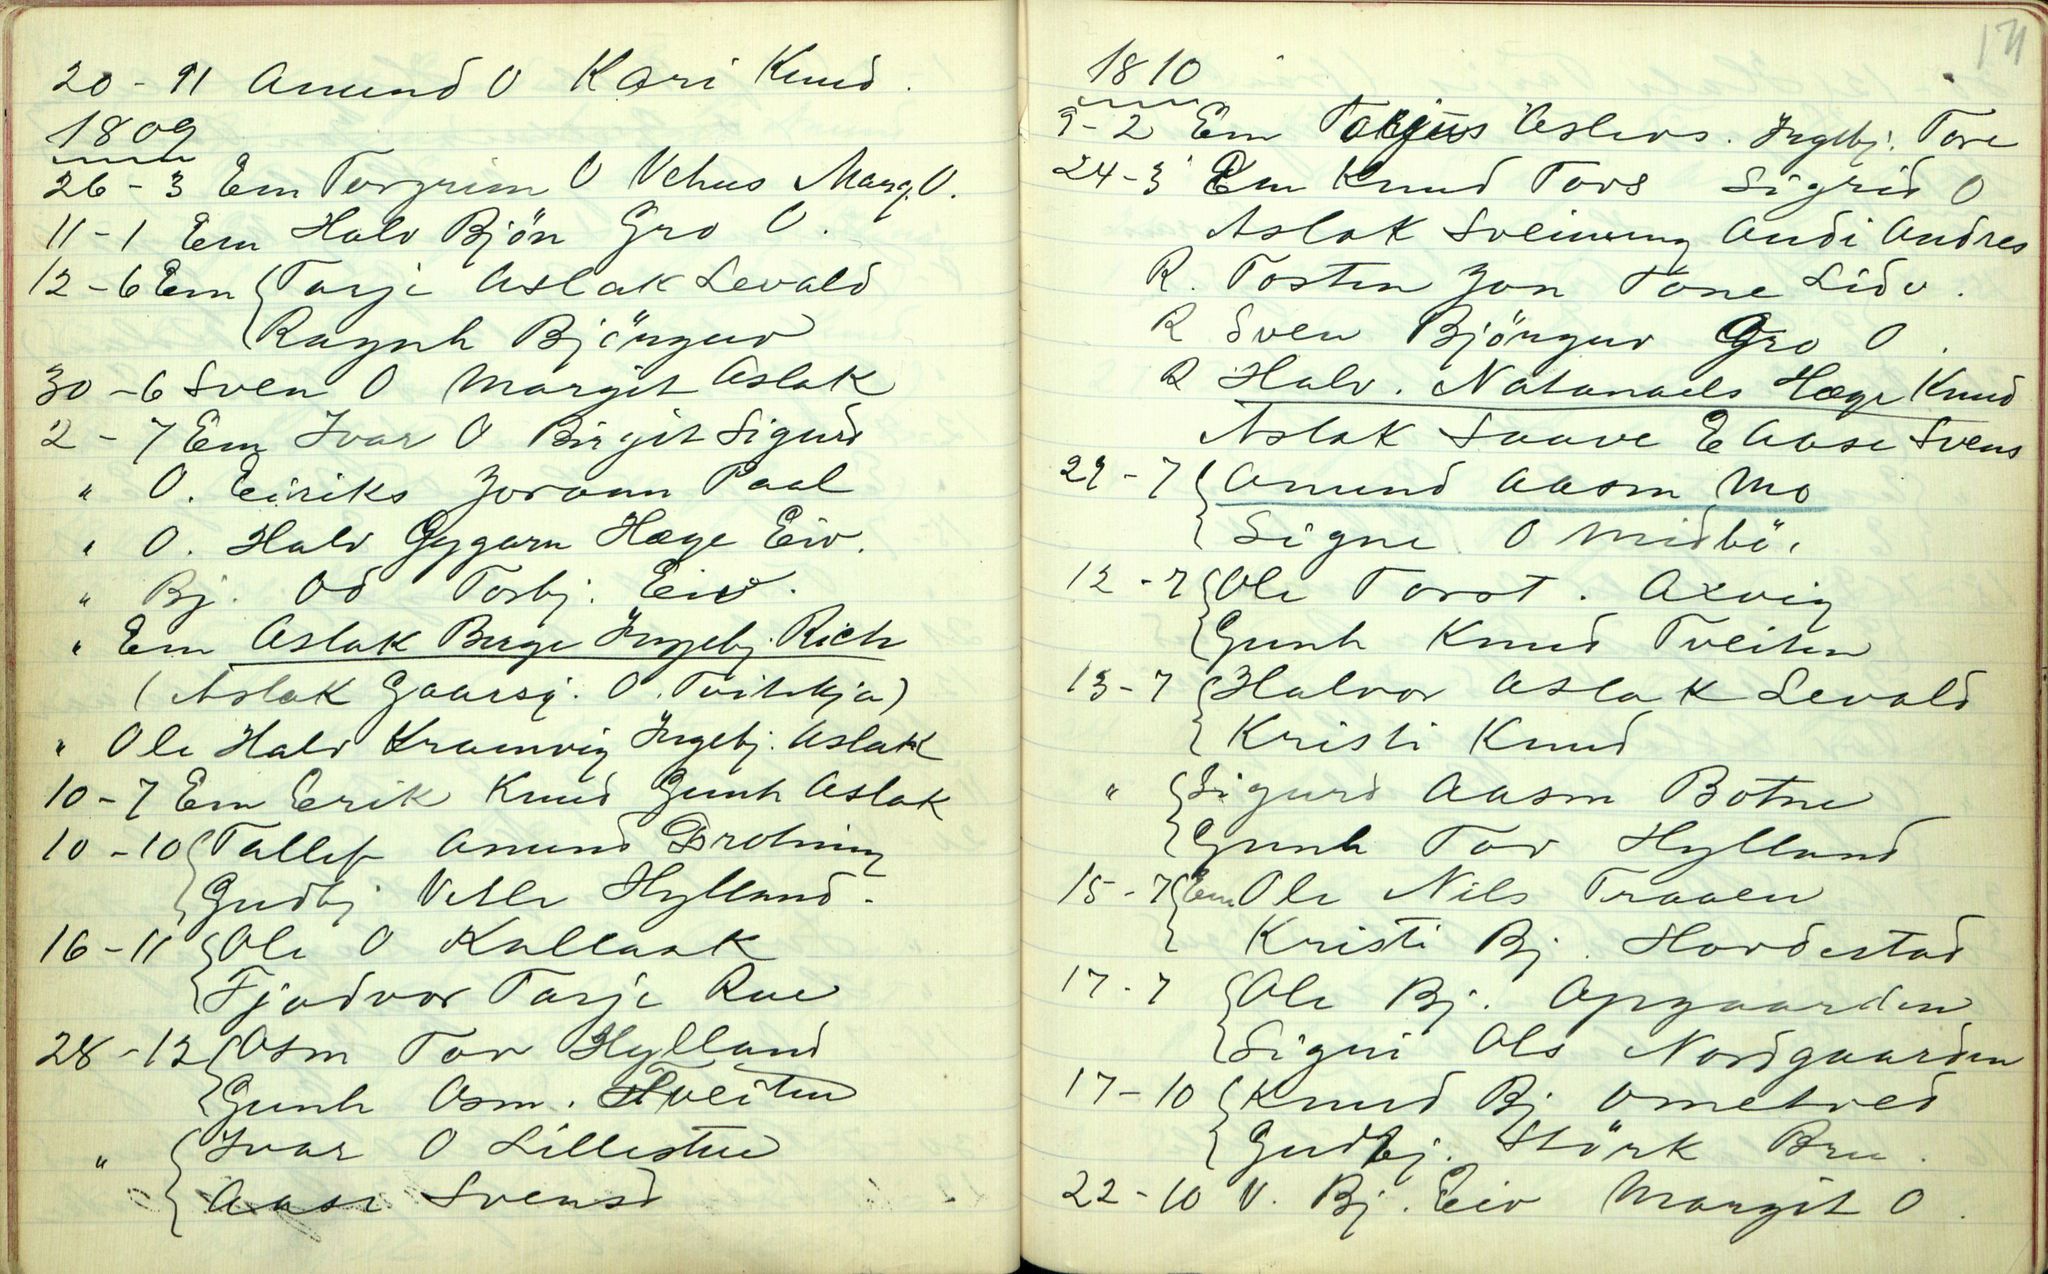 20 - 11 Amund O Kari Knud.
1809
26 - 3 Em Torgrim O Vehus Marg. O.
11 - 1 Em Halv Bjön Gro O.
12 - 6 Em Tarje Aslak Levald
Ragnh Björguv
30 - 6 Sven O Margit Aslak
2 - 7 Em Ivar O Birgit Sigurd
" O. Eiriks Joraun Paal
" O. Halv Gygarn Hæge Eiv.
" Bj. Od Torbj. Eiv.
" Em Aslak Berge Ingebj. Rich
(Aslak Gaarsj. O. Tveitekja)
" Ole Halv Kramvig Ingebj. Aslak
10 - 7 Em Erik Knud Gunh Aslak
10 - 10 Tallef Amund Brotning
Gudbj Vetle Hylland.
16 - 11 Ole O Kallaak
Fjodvor Tarje Rue
28 - 12 Osm Tov Hylland
Gunh Osm. Tveiten
" Ivar O Lillestue
Aase Svensd
171
1810
9 - 2 Em Targus Eslers. Ingebj. Tore
24 - 3 Em Knud Tovs Sigrid O
Aslak Sveinung Andi Andres
R. Tosten Jon Tone Lidv.
R Sven Björguv Gro O.
R Halv. Natanaels Hæge Knud
Aslak Saave E Aase Svens
29 - 7 Amund Aasm Mo
Signe O Midbö.
12 - 7 Ole Torst. Axvig
Gunh Knud Tveiten
13 - 7 Halvor Aslak Levald
Kristi Knud
" Sigurd Aasm Botne
Gunh Tov Hylland
15 - 7 Em Ole Nils Traaen
Kristi Bj. Hovdestad
17 - 7 Ole Bj. Opgaarden
Signi Ols Nordgaarden
17 - 10 Knud Bj Ometved
Gudbj. Störk Bru.
22 - 10 V. Bj. Eiv Margit O.